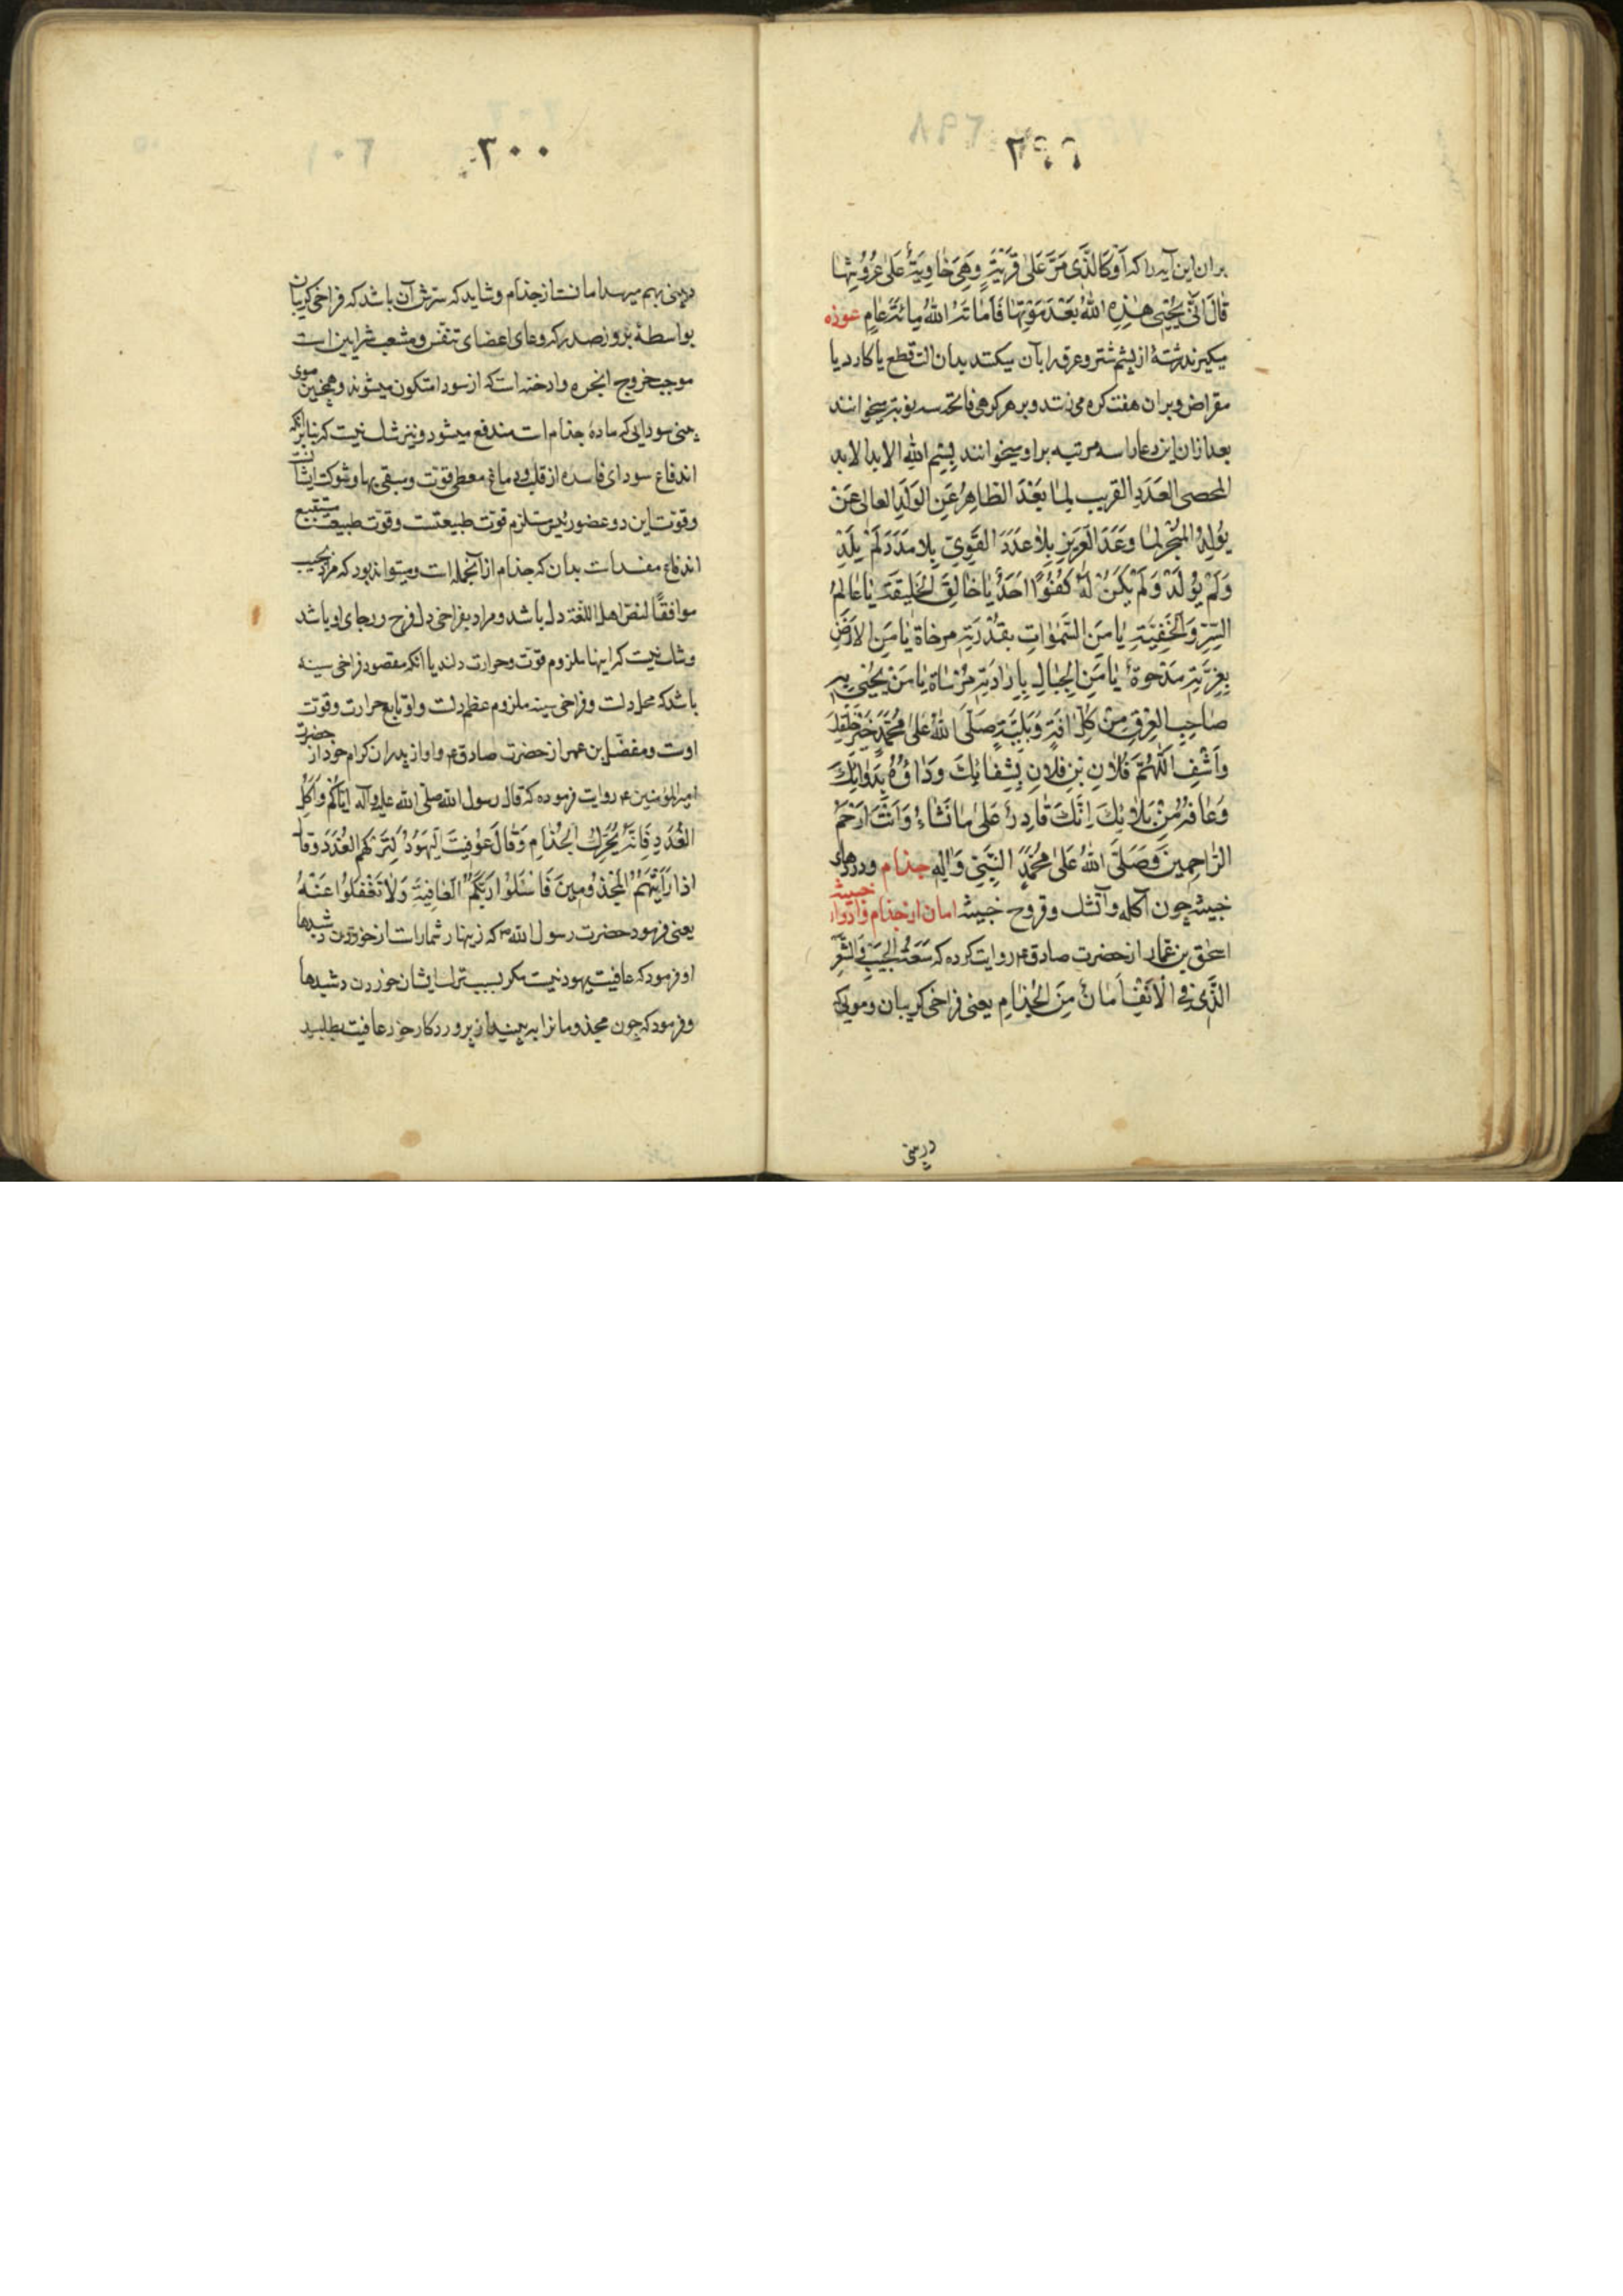 ٢٩٩
بران این آیه را که اَوْ كَالَّذِی مَرَّ عَلیٰ قَرْیَةٍ وَهِیَ خٰاوِیَةٌ عَلیٰ عُرُوشِهٰا
قٰالَ اَنّیٰ یُحْیِی هٰذِهِ اللّٰهُ بَعْدَ مَوْتِهٰا فَاَمٰاتَهُ اللّٰهُ مِائَةَ عٰامٍ عوذه
میگیرند رشتهٔ از پشم شتر و عرق را بآن میبکنند بدان الت قطع یا کارد یا
مقراض و بران هفت کره می زنند و بر هر کرهی فاتحه سه نوبت میخوانند
بعد ازان این دعا را سه مرتبه براو میخوانند بِسْمِ اللّٰهِ الابد الابد
المحصی العَدَدِ القریب لِمٰا بَعْدَ الطّاهِرُ عَنِ الوَلَدِ العالی عَنْ
یُولَدُ المُنْجِزِ لِمٰا وَعَدَ العَزیزِ بِلاٰ عَدَدَ القَوِیِّ بِلا مَدَدَ لَمْ یَلِدْ
وَلَمْ یُولَدْ وَلَمْ یَكُنْ لَهُ كُفُوًا اَحَدٌ یٰا خٰالِقَ الخَلیقَةِ یٰا عٰالِمُ
السِّرِّ وَالخَفِیَّةِ یٰا مَنِ السَّمٰوٰاتِ بِقُدْرَتِهِ مرخاة یٰا مَنِ الاَرْضُ
بِعِزَّتِهِ مَدْحُوةٌ یٰا مَنِ الجِبٰالِ بِاِرٰادَتِهِ مُرْسٰاة یٰا مَنْ یُحْیی بِهِ
صٰاحِبِ العِرْقِ مِنْ كُلِّ اٰفَةٍ وَبَلِیَّةٍ صَلَّی اللّٰهُ عَلیٰ مُحَمَّدٍ خَیْرِ خَلْقِكَ
وَاَشْفِ اَللّٰهُمَّ فُلاٰنِ بْنِ فلاٰنِ بِشِفٰائِكَ وَدٰاوُهُ بِدَوٰائِكَ
وَعٰافِهُ مِنْ بَلاٰئِكَ اِنَّكَ قٰادِرٌ عَلیٰ مٰا تَشٰاءُ وَاَنْتَ اَرْحَمُ
الرّٰاحِمِینَ وَصَلَّی اللّٰهُ عَلیٰ مُحَمَّدٍ النَّبِیِّ وَاٰلِهِ جذام و دردهای
خبیثه چون آکله و آتشك و قروح خبیثه امان از جذام و ادوار خبیثه
اسحٰق بن عمار از حضرت صادق ع روایت کرده که سَعَةُ الجَیْبِ وَالشَّعْرِ
الَّذی فی الاَنْفِ اَمٰانٌ مِنَ الجُذٰامِ یعنی فراخی کریبان و موئی که
در بینی
٣٠٠
در بینی بهم میرسد امانست از جذام و شاید که سرّش آن باشد که فراخی کریبان
بواسطهٔ بروز صدر که وعای اعضای تنفس و مشعب شرایین است
موجب خروج ابخره و ادخنه است که از سودا متکون میشوند و همچنین موی
بینی سودایی که مادهٔ جذام است مندفع میشود و نیز شك نیست که بنابر انکه
اندفاع سودای فاسده از قلب و دماغ معطی قوت و مبقی بها و شوکت ایشانست
و قوت این دو عضو رئیس مستلزم قوت طبیعتست و قوت طبیعت مستتبع
اندفاع مفسدات بدان که جذام از آنجمله است و میتواند بود که مراد بجیب
موافقًا لنصّ اهل اللّغة دل باشد و مراد بفراخی دل فرح و رجای او باشد
و شك نیست که اینها ملزوم قوّت و حرارت دلند یا انکه مقصود فراخی سینه
باشد که محل دلست و فراخی سینه ملزوم عظم دلست و او تابع حرارت و قوت
اوست و مفضّل بن عمر از حضرت صادق ع و او از پدران کرام خود از حضرت
امیرالمؤمنین ع روایت فرموده که قال رسول الله صلی الله علیه وآله اِیّٰاكُمْ وَاَكْلَ
الغُدَدِ فَاِنَّهُ یُحَرِّكُ الجُذٰامِ وَقٰالَ عُوفِیَتَ الیَهُودُ لِتَرْكِهِمُ الغُدَدَ وَقٰا
اِذٰا رَاَیْتُمُ المَجْذُومِینَ فَاسْئَلُوا رَبَّكُمُ العٰافِیَةَ وَلاٰ تَغْفَلُوا عَنْهُ
یعنی فرمود حضرت رسول الله ص که زینهار شما راست از خوردن دشبدها
او فرمود که عافیت یهود نیست مکر بسبب ترك ایشان خوردن دشبدها
و فرمود که چون مجذومانرا به بینید از پروردکار خود عافیت بطلبید